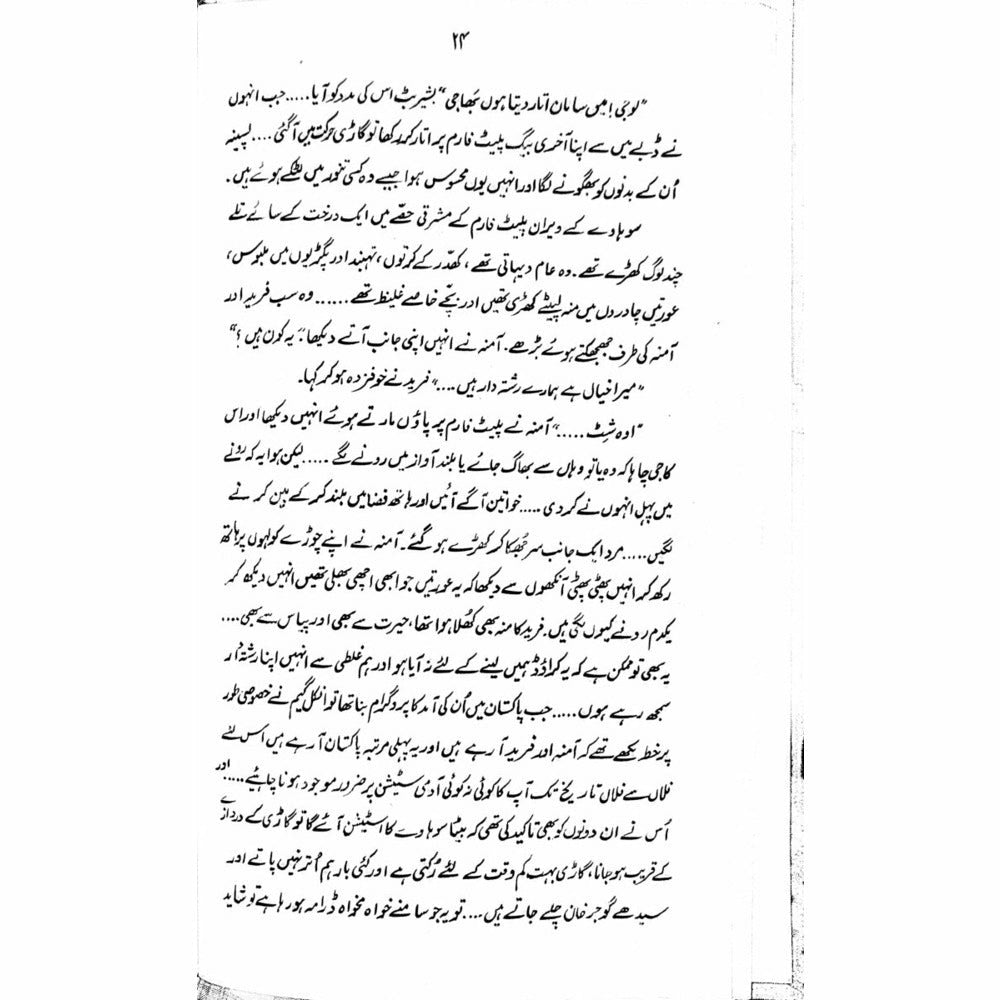 ۲۴
"لوجی! میں سامان اتار دیتا ہوں بھاجی" بشیر بٹ اس کی مدد کو آیا..... جب انہوں
نے ڈبے میں سے اپنا آخری بیگ پلیٹ فارم پر اتار کر رکھا تو گاڑی حرکت میں آ گئی.... پسینہ
اُن کے بدنوں کو بھگونے لگا اور انہیں یوں محسوس ہوا جیسے وہ کسی تنور میں لٹکے ہوئے ہیں۔
سوہاوے کے ویران پلیٹ فارم کے مشرقی حصّے میں ایک درخت کے سائے تلے
چند لوگ کھڑے تھے۔ وہ عام دیہاتی تھے، کھدّر کے کُرتوں، تہبند اور پگڑیوں میں ملبوس،
عورتیں چادروں میں منہ لپیٹے کھڑی تھیں اور بچّے خاصے غلیظ تھے...... وہ سب فرید اور
آمنہ کی طرف جھجھکتے ہوئے بڑھے۔ آمنہ نے انہیں اپنی جانب آتے دیکھا۔ "یہ کون ہیں؟"
"میرا خیال ہے ہمارے رشتہ دار ہیں...." فرید نے خوفزدہ ہو کر کہا۔
"اوہ شِٹ....." آمنہ نے پلیٹ فارم پر پاؤں مارتے ہوئے انہیں دیکھا اور اس
کا جی چاہا کہ وہ یا تو وہاں سے بھاگ جائے یا بلند آواز میں رونے لگے..... لیکن ہوا یہ کہ رونے
میں پہل انہوں نے کر دی..... خواتین آگے آئیں اور ہاتھ فضا میں بلند کر کے بین کرنے
لگیں..... مرد ایک جانب سر جُھکا کر کھڑے ہو گئے۔ آمنہ نے اپنے چوڑے کولہوں پر ہاتھ
رکھ کر انہیں پھٹی پھٹی آنکھوں سے دیکھا کہ یہ عورتیں جو ابھی اچھی بھلی تھیں انہیں دیکھ کر
یکدم رونے کیوں لگی ہیں۔ فرید کا منہ بھی کُھلا ہوا تھا، حیرت سے بھی اور پیاس سے بھی....
یہ بھی تو ممکن ہے کہ یہ کراؤڈ ہمیں لینے کے لئے نہ آیا ہو اور ہم غلطی سے انہیں اپنا رشتہ دار
سمجھ رہے ہوں..... جب پاکستان میں اُن کی آمد کا پروگرام بنا تھا تو انکل گیم نے خصوصی طور
پر خط لکھے تھے کہ آمنہ اور فرید آ رہے ہیں اور یہ پہلی مرتبہ پاکستان آ رہے ہیں اس لئے
فلاں سے فلاں تاریخ تک آپ کا کوئی نہ کوئی آدمی سٹیشن پر ضرور موجود ہونا چاہئے..... اور
اُس نے ان دونوں کو بھی تاکید کی تھی کہ بیٹا سوہاوے کا اسٹیشن آئے گا تو گاڑی کے دروازے
کے قریب ہو جانا، گاڑی بہت کم وقت کے لئے رُکتی ہے اور کئی بار ہم اُتر نہیں پاتے اور
سیدھے گوجرخان چلے جاتے ہیں.... تو یہ جو سامنے خواہ مخواہ ڈرامہ ہو رہا ہے تو شاید